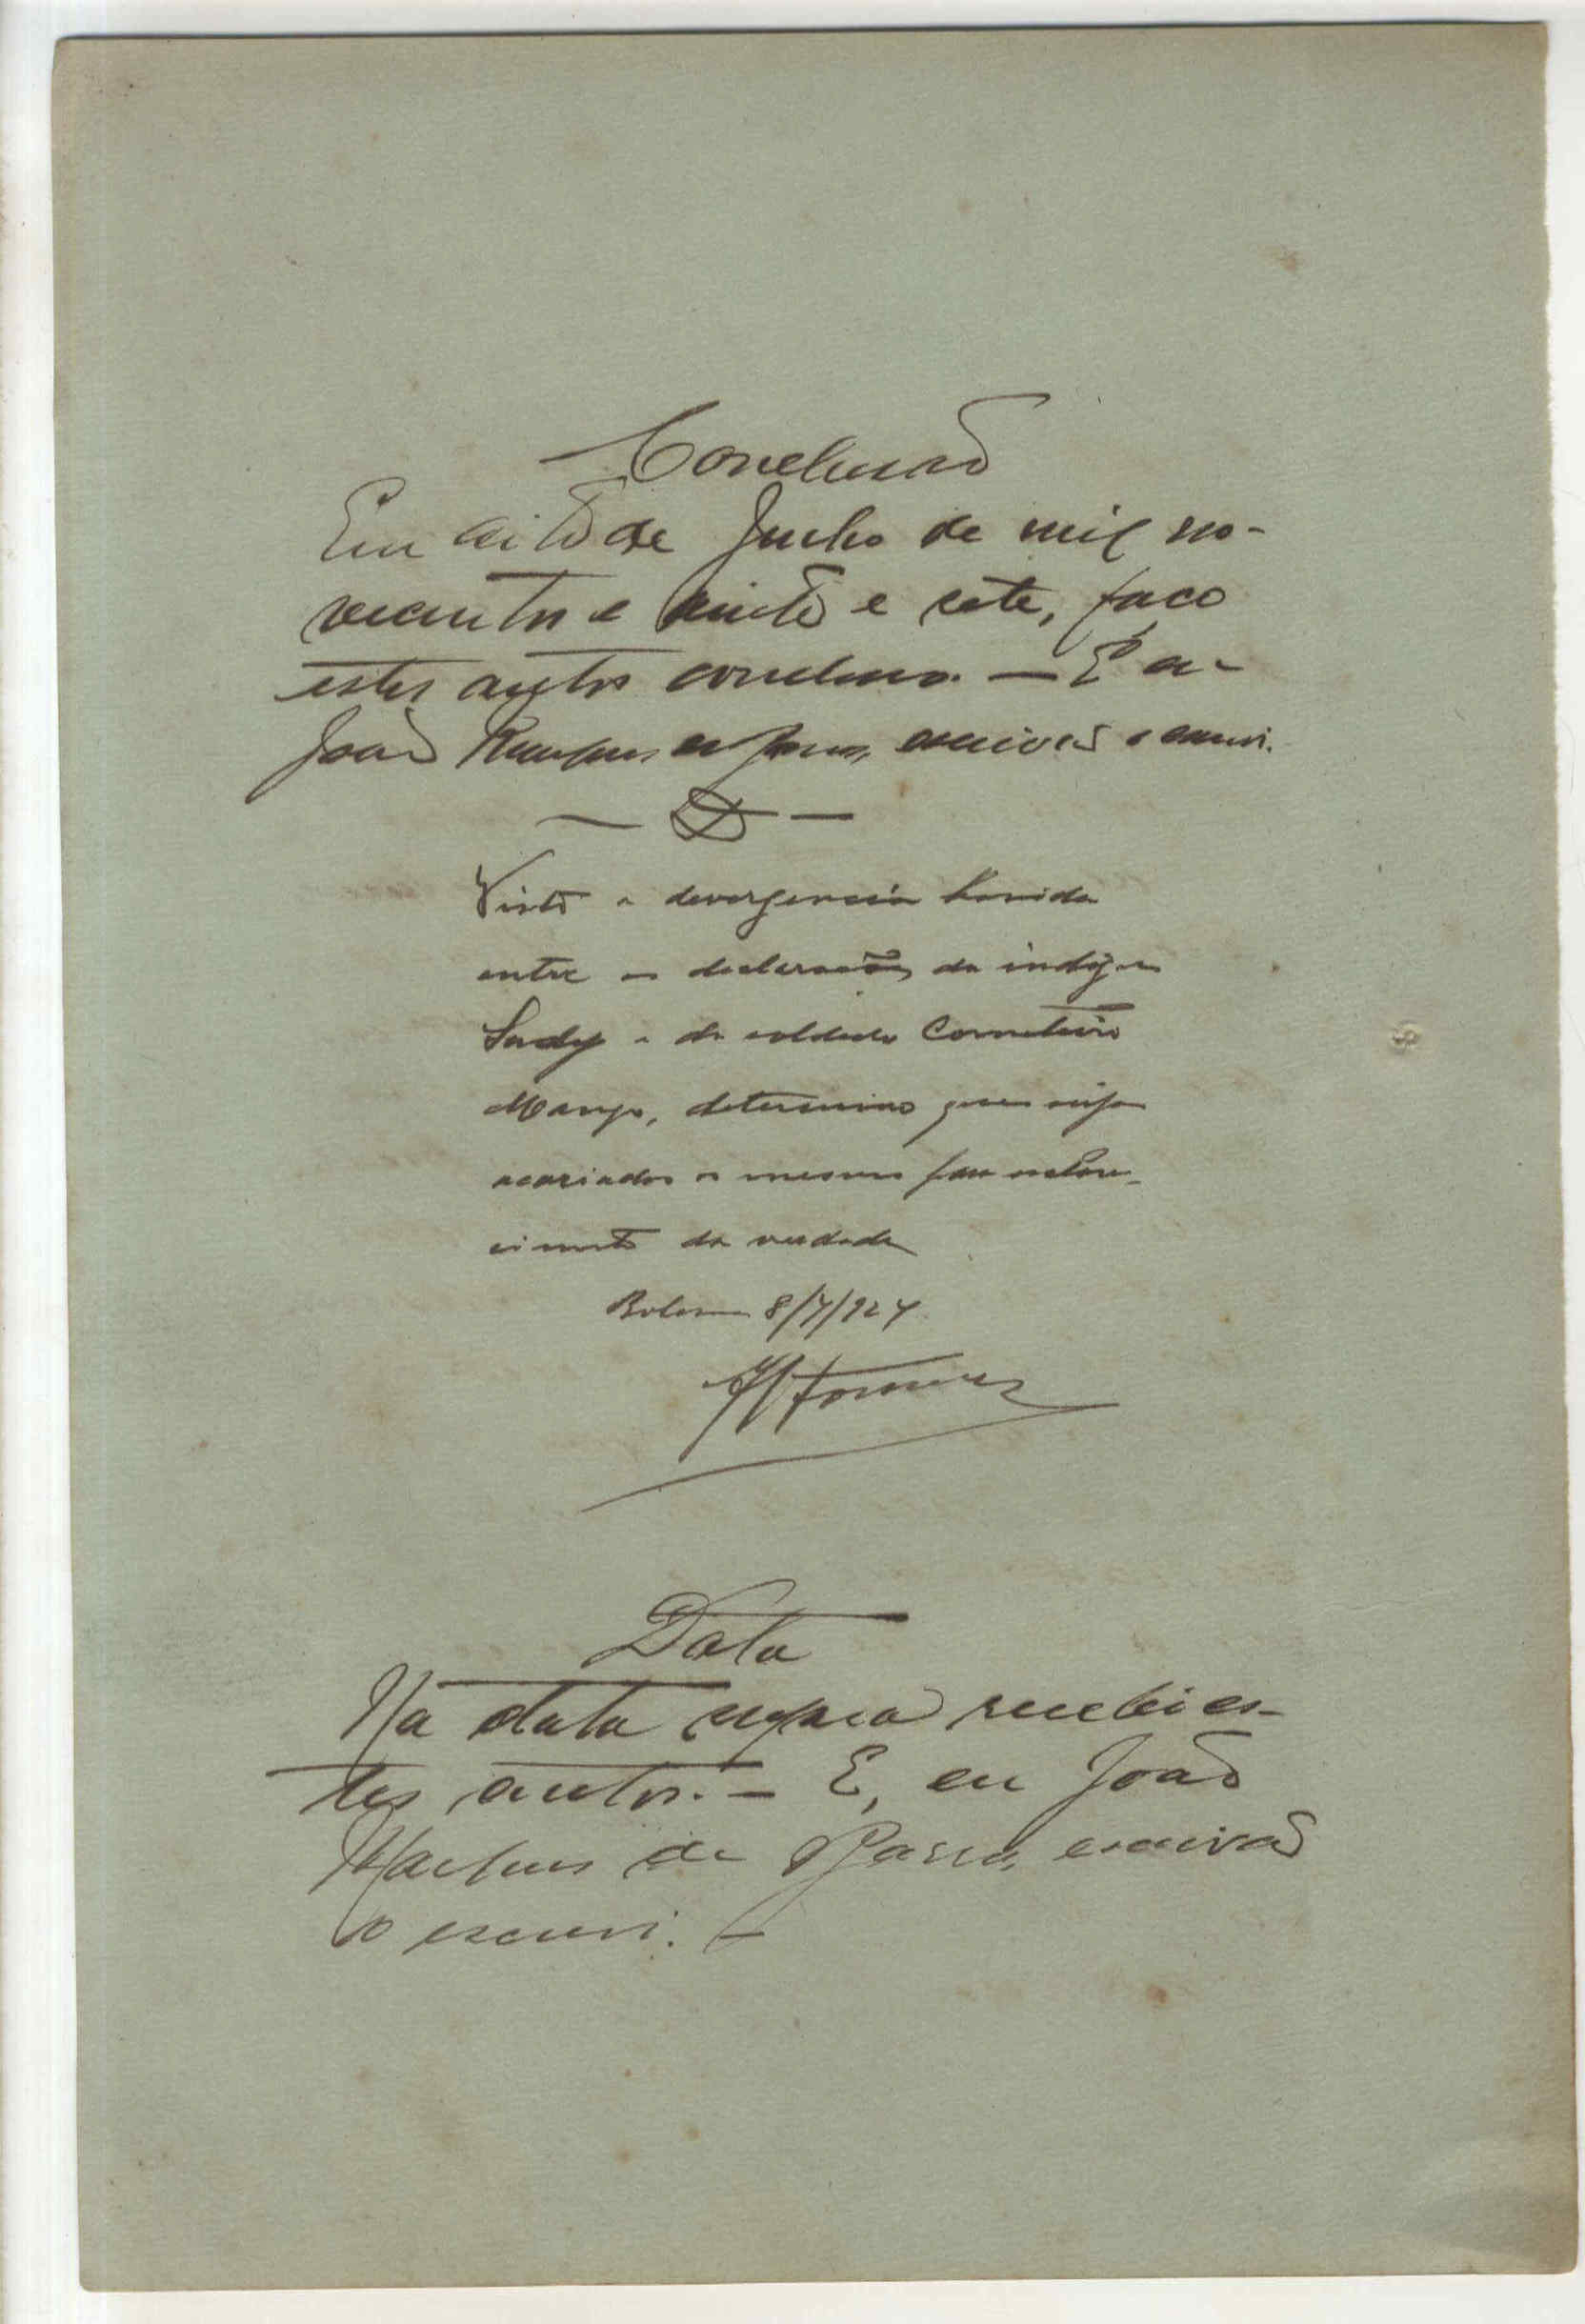 Conclusão
Em oito de Julho de mil no-
vecentos e vinte e sete, faço
estes autos conclusos. — E eu
João Marques de Barros, escrivão o escrevi.
Visto a devergencia havida
entre as declarações da indigena
Sady e do soldado Corneteiro
Manga, determino que sejam
acariados os mesmos para esclare-
cimento da verdade
Bolama 8/7/927
Data
Na data supra recebi es-
tes autos. — E, eu João
Marques de Barros, escrivão
o escrevi. —